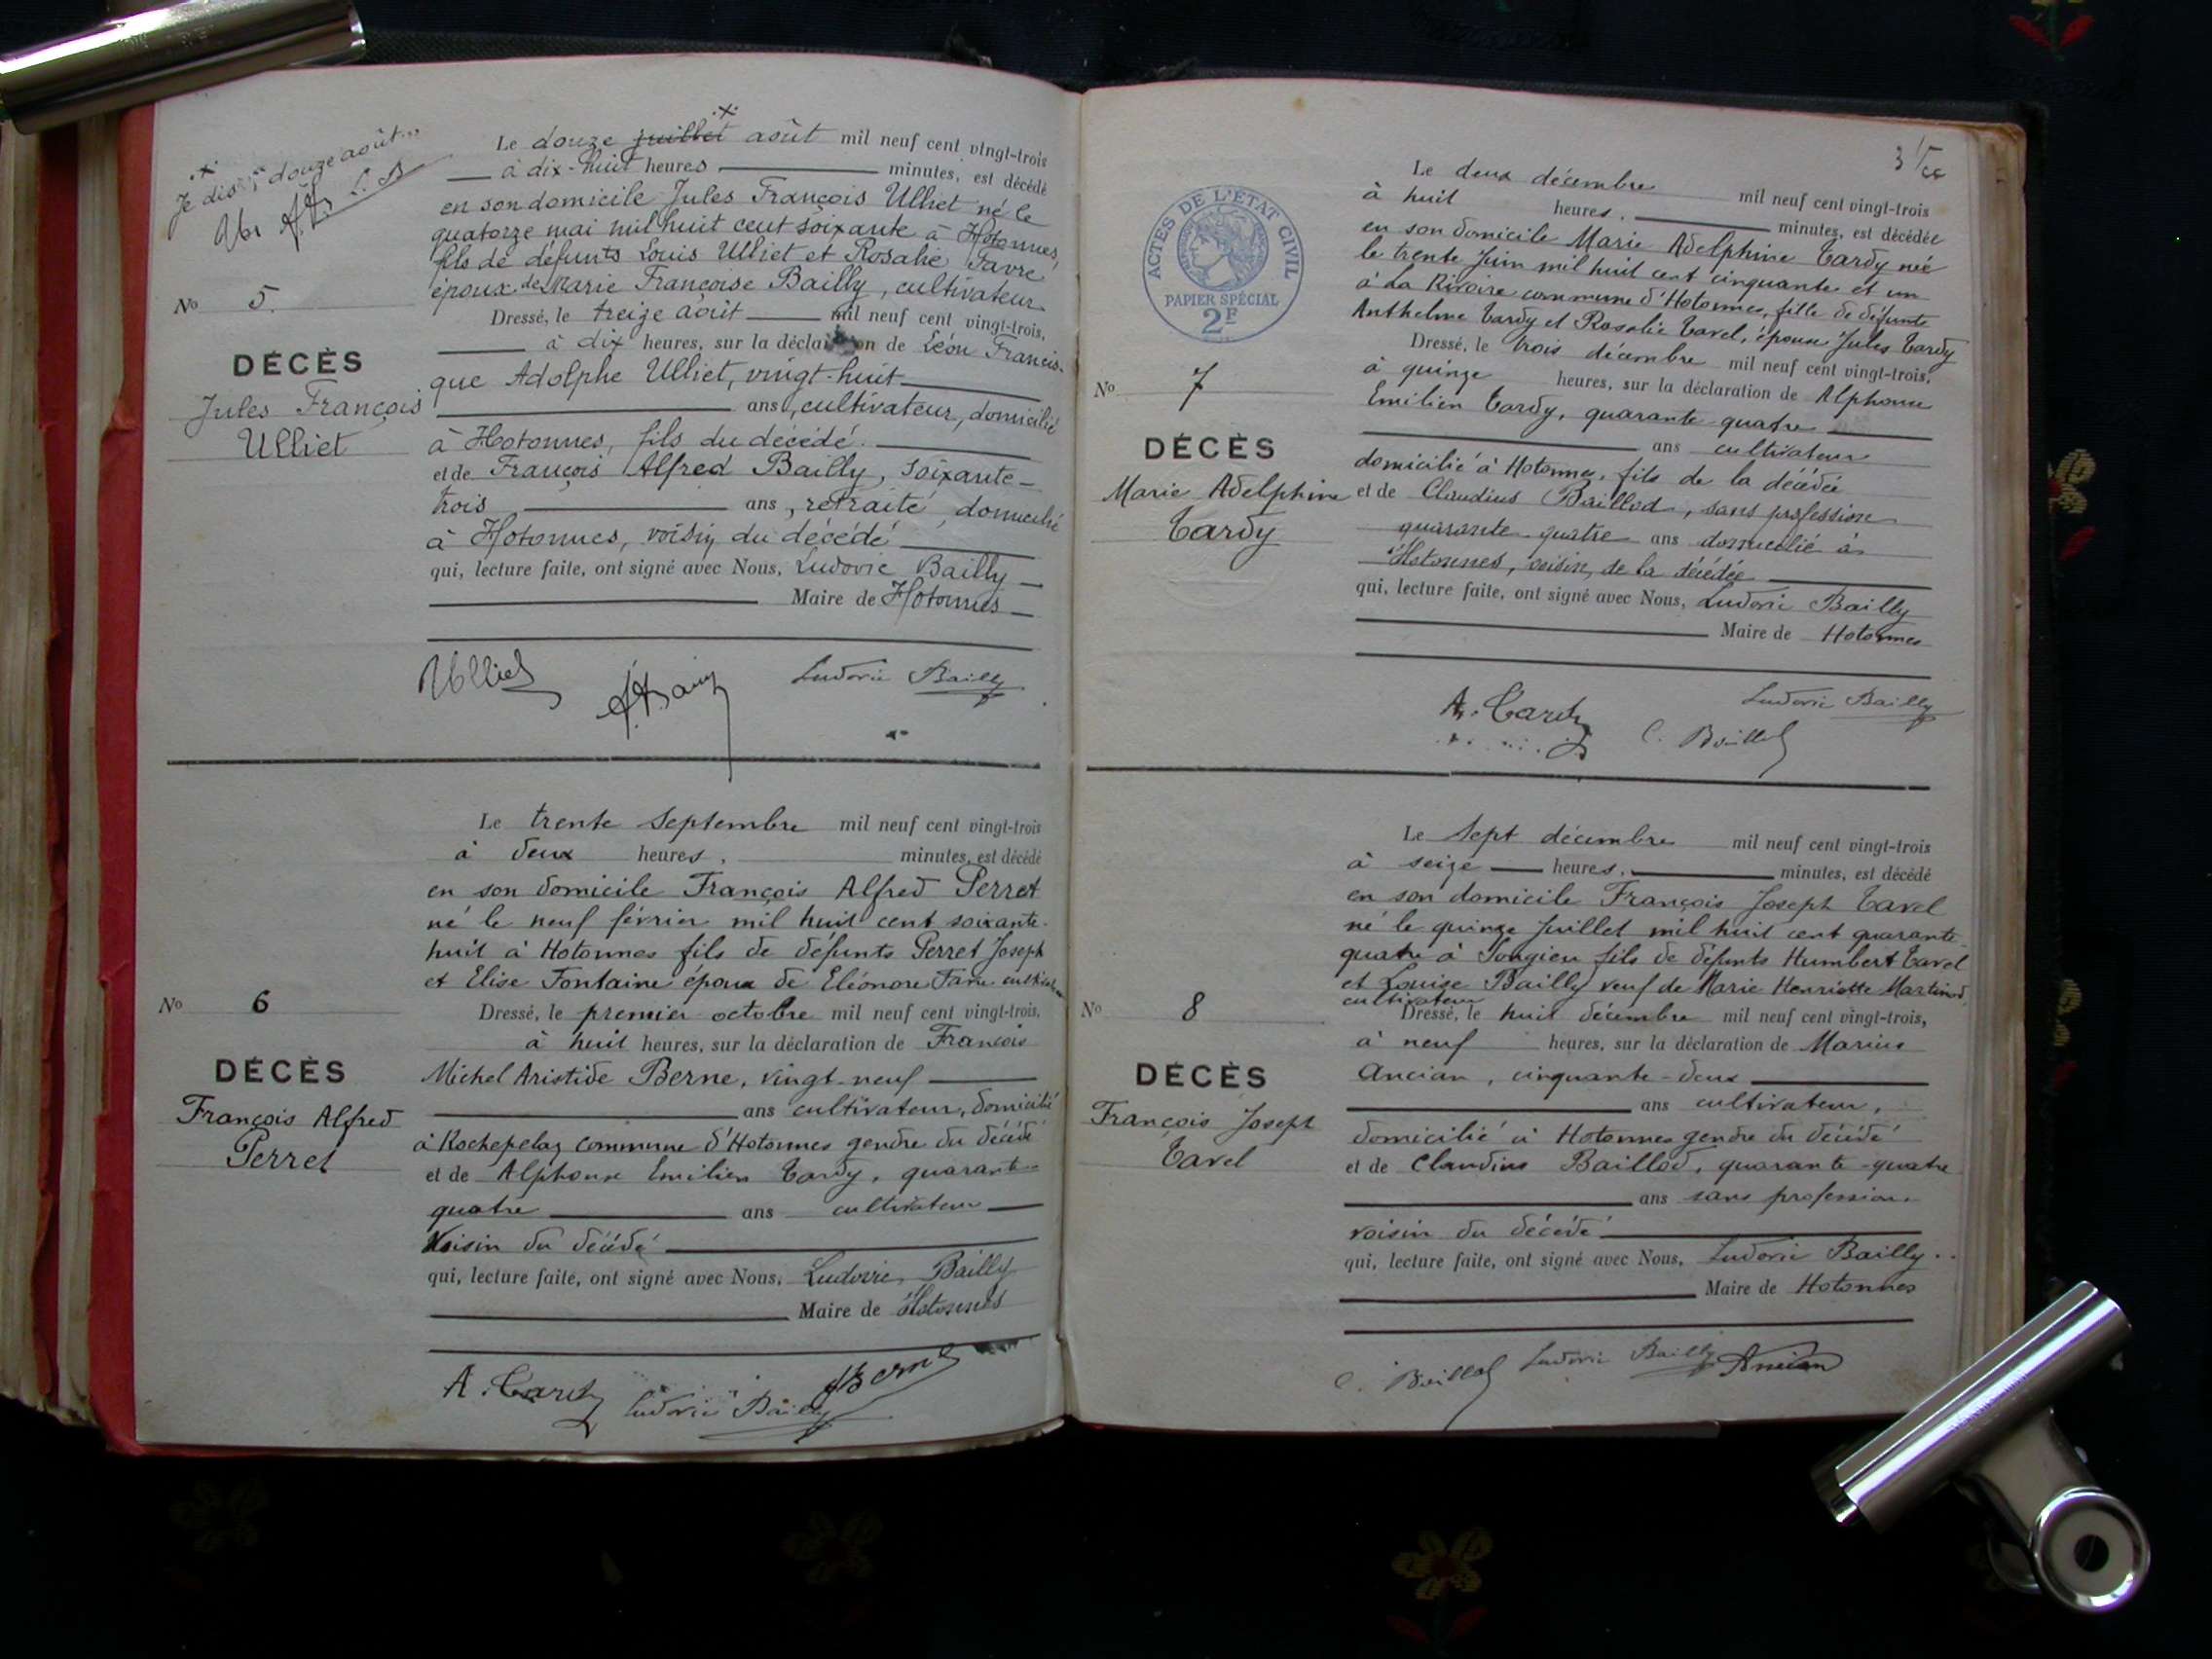 Je dis : douze août...
L. B
Nº 5.
DÉCÈS
Jules François
Ulliet
Le douze juillet août mil neuf cent vingt-trois
à dix-huit heures minutes, est décédé
en son domicile Jules François Ulliet né le
quatorze mai mil huit cent soixante à Hotonnes,
fils de défunts Louis Ulliet et Rosalie Favre
époux de Marie Françoise Bailly, cultivateur
Dressé, le treize août mil neuf cent vingt-trois,
à dix heures, sur la déclaration de Léon Francis-
que Adolphe Ulliet, vingt-huit
ans, cultivateur, domicilié
à Hotonnes, fils du décédé.
et de François Alfred Bailly, soixante-
trois ans, retraité, domicilié
à Hotonnes, voisin du décédé
qui, lecture faite, ont signé avec Nous, Ludovic Bailly
Maire de Hotonnes
Ulliet
Ludovic Bailly
Nº 6
DÉCÈS
François Alfred
Perret
Le trente Septembre mil neuf cent vingt-trois
à deux heures, minutes, est décédé
en son domicile François Alfred Perret
né le neuf février mil huit cent soixante-
huit à Hotonnes fils de défunts Perret Joseph
et Elise Fontaine époux de Eléonore Favre cultivateur
Dressé, le premier octobre mil neuf cent vingt-trois,
à huit heures, sur la déclaration de François
Michel Aristide Berne, vingt-neuf
ans cultivateur, domicilié
à Rochepelaz commune d'Hotonnes gendre du décédé
et de Alphonse Emilien Tardy, quarante-
quatre ans cultivateur
Voisin du décédé
qui, lecture faite, ont signé avec Nous, Ludovic Bailly
Maire de Hotonnes
A. Tardy Ludovic Bailly Berne
3
ACTES DE L'ÉTAT CIVIL
PAPIER SPÉCIAL
2F
Nº 7
DÉCÈS
Marie Adelphine
Tardy
Le deux décembre mil neuf cent vingt-trois
à huit heures, minutes, est décédée
en son domicile Marie Adelphine Tardy née
le trente Juin mil huit cent cinquante et un
à La Rivoire commune d'Hotonnes, fille de défunts
Anthelme Tardy et Rosalie Tavel, épouse Jules Tardy
Dressé, le trois décembre mil neuf cent vingt-trois,
à quinze heures, sur la déclaration de Alphonse
Emilien Tardy, quarante-quatre
ans cultivateur
domicilié à Hotonnes, fils de la décédée
et de Claudius Baillod, sans profession
quarante-quatre ans domicilié à
Hotonnes, voisin, de la décédée
qui, lecture faite, ont signé avec Nous, Ludovic Bailly
Maire de Hotonnes
A. Tardy C. Baillod Ludovic Bailly
Nº 8
DÉCÈS
François Joseph
Tavel
Le Sept décembre mil neuf cent vingt-trois
à seize heures, minutes, est décédé
en son domicile François Joseph Tavel
né le quinze Juillet mil huit cent quarante-
quatre à Songieu fils de défunts Humbert Tavel
et Louise Bailly veuf de Marie Henriette Martinod,
cultivateur
Dressé, le huit décembre mil neuf cent vingt-trois,
à neuf heures, sur la déclaration de Marius
Ancian, cinquante-deux
ans cultivateur,
domicilié à Hotonnes gendre du décédé
et de Claudius Baillod, quarante-quatre
ans sans profession.
voisin du décédé
qui, lecture faite, ont signé avec Nous, Ludovic Bailly
Maire de Hotonnes
C. Baillod Ludovic Bailly Ancian